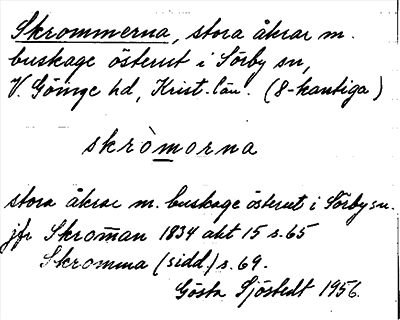 Skrommerna, stora åkrar m.
buskage österut i Sörby sn,
V. Göinge hd, Krist. län. (8-kantiga)
skròmorna
stora åkrar m. buskage österut i Sörby sn.
jfr Skroman 1834 akt 15 s. 65
Skromma (sidd.) s. 69.
Gösta Sjöstedt 1956.